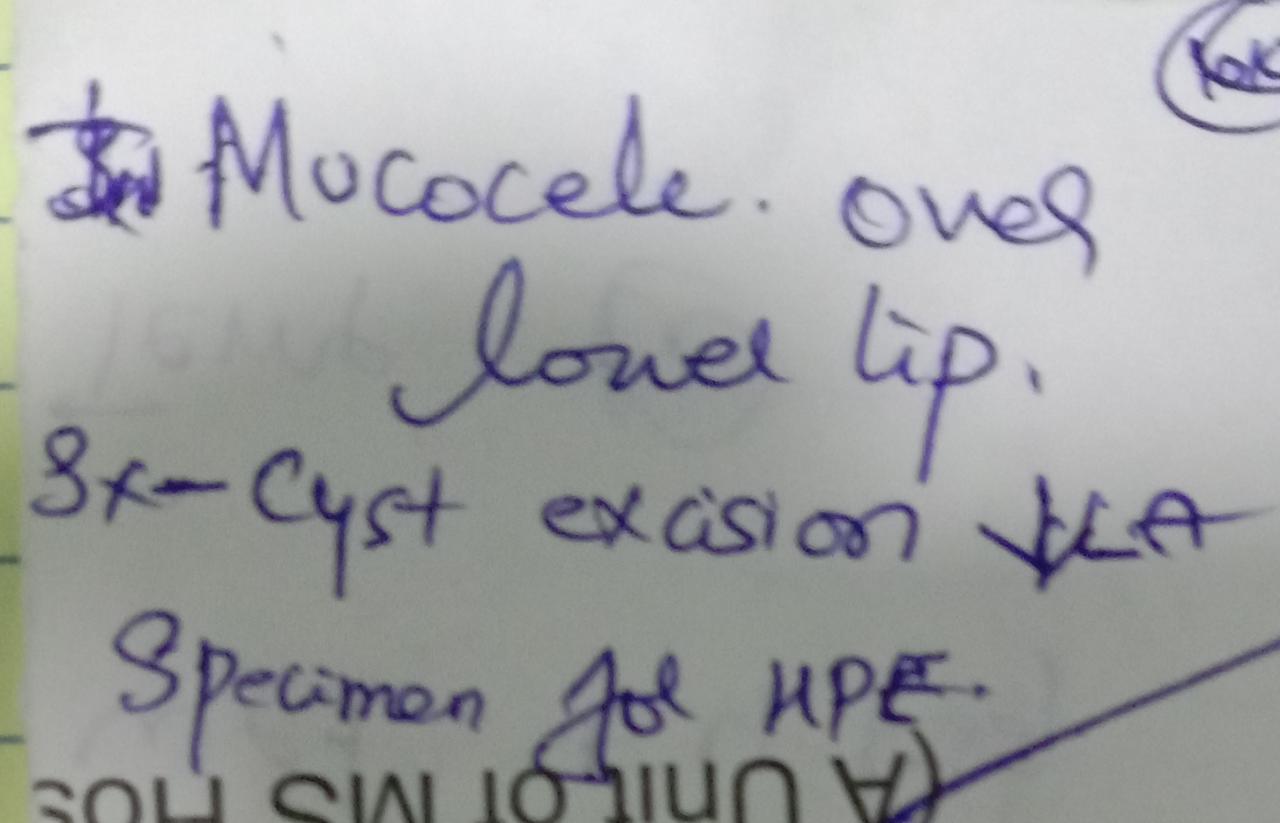 Mucocele. over
lower lip.
Sx- Cyst excision ↓LA
Specimen for HPE.
(A Unit of MS Hos